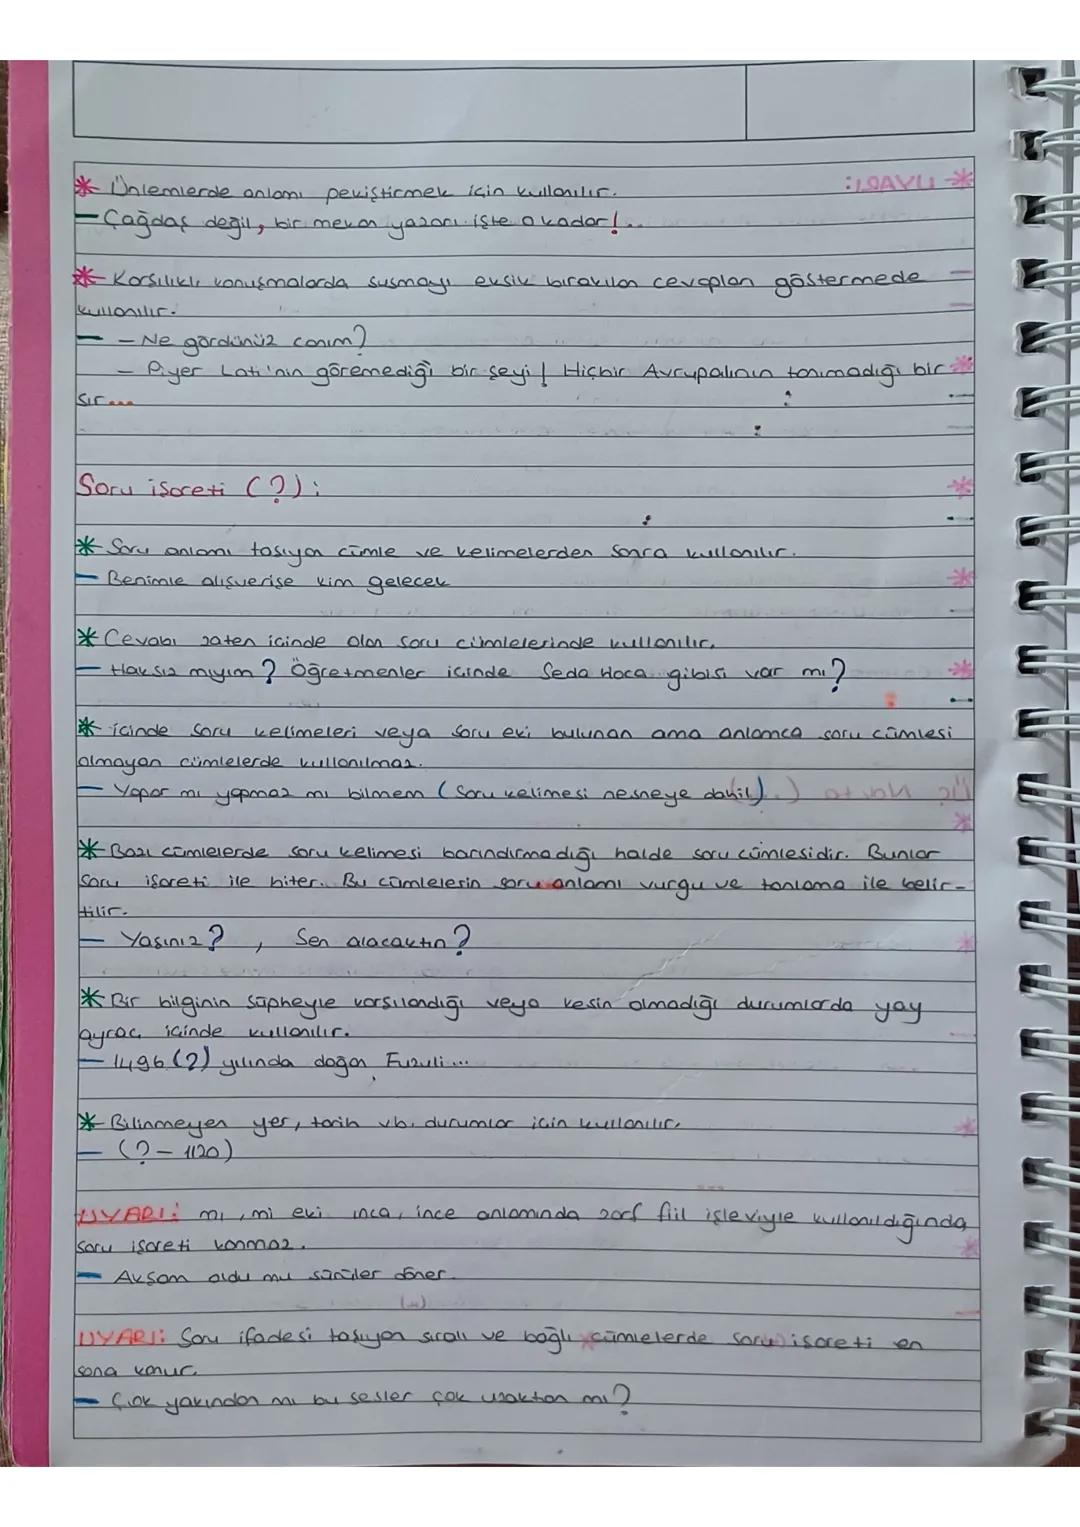 * Ünlemlerde anlamı pekiştirmek için kullanılır.
- Çağdaş değil, bir mekan yazarı işte o kadar!..
* Karşılıklı konuşmalarda susmayı eksik bırakılan cevapları göstermede
kullanılır.
- - Ne gördünüz canım?
- Piyer Loti'nin göremediği bir şeyi! Hiçbir Avrupalının tanımadığı bir
sır...
Soru işareti (?):
* Soru anlamı taşıyan cümle ve kelimelerden sonra kullanılır.
- Benimle alışverişe kim gelecek
* Cevabı zaten içinde olan soru cümlelerinde kullanılır.
- Haksız mıyım? Öğretmenler içinde Seda Hoca gibisi var mı?
* içinde soru kelimeleri veya soru eki bulunan ama anlamca soru cümlesi
olmayan cümlelerde kullanılmaz.
- Yapar mı yapmaz mı bilmem (Soru kelimesi nesneye dahil)
* Bazı cümlelerde soru kelimesi barındırmadığı halde soru cümlesidir. Bunlar
soru işareti ile biter. Bu cümlelerin soru anlamı vurgu ve tonlama ile belir-
tilir.
- Yaşınız? , Sen alacaktın?
* Bir bilginin şüpheyle karşılandığı veya kesin olmadığı durumlarda yay
ayraç içinde kullanılır.
- 1496 (?) yılında doğan Fuzuli...
* Bilinmeyen yer, tarih vb. durumlar için kullanılır.
- (? - 1120)
UYARI: mı, mi eki ınca, ince anlamında zarf fiil işleviyle kullanıldığında
soru işareti konmaz.
- Akşam oldu mu sürüler döner.
UYARI: Soru ifadesi taşıyan sıralı ve bağlı cümlelerde soru işareti en
sona konur.
- Çok yakından mı bu sesler çok uzaktan mı?